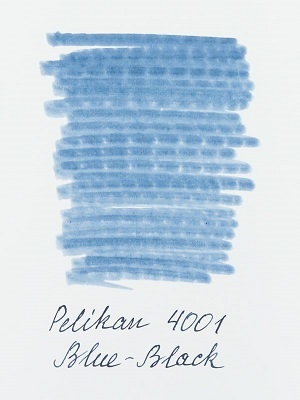 Pelikan 4001
Blue-Black